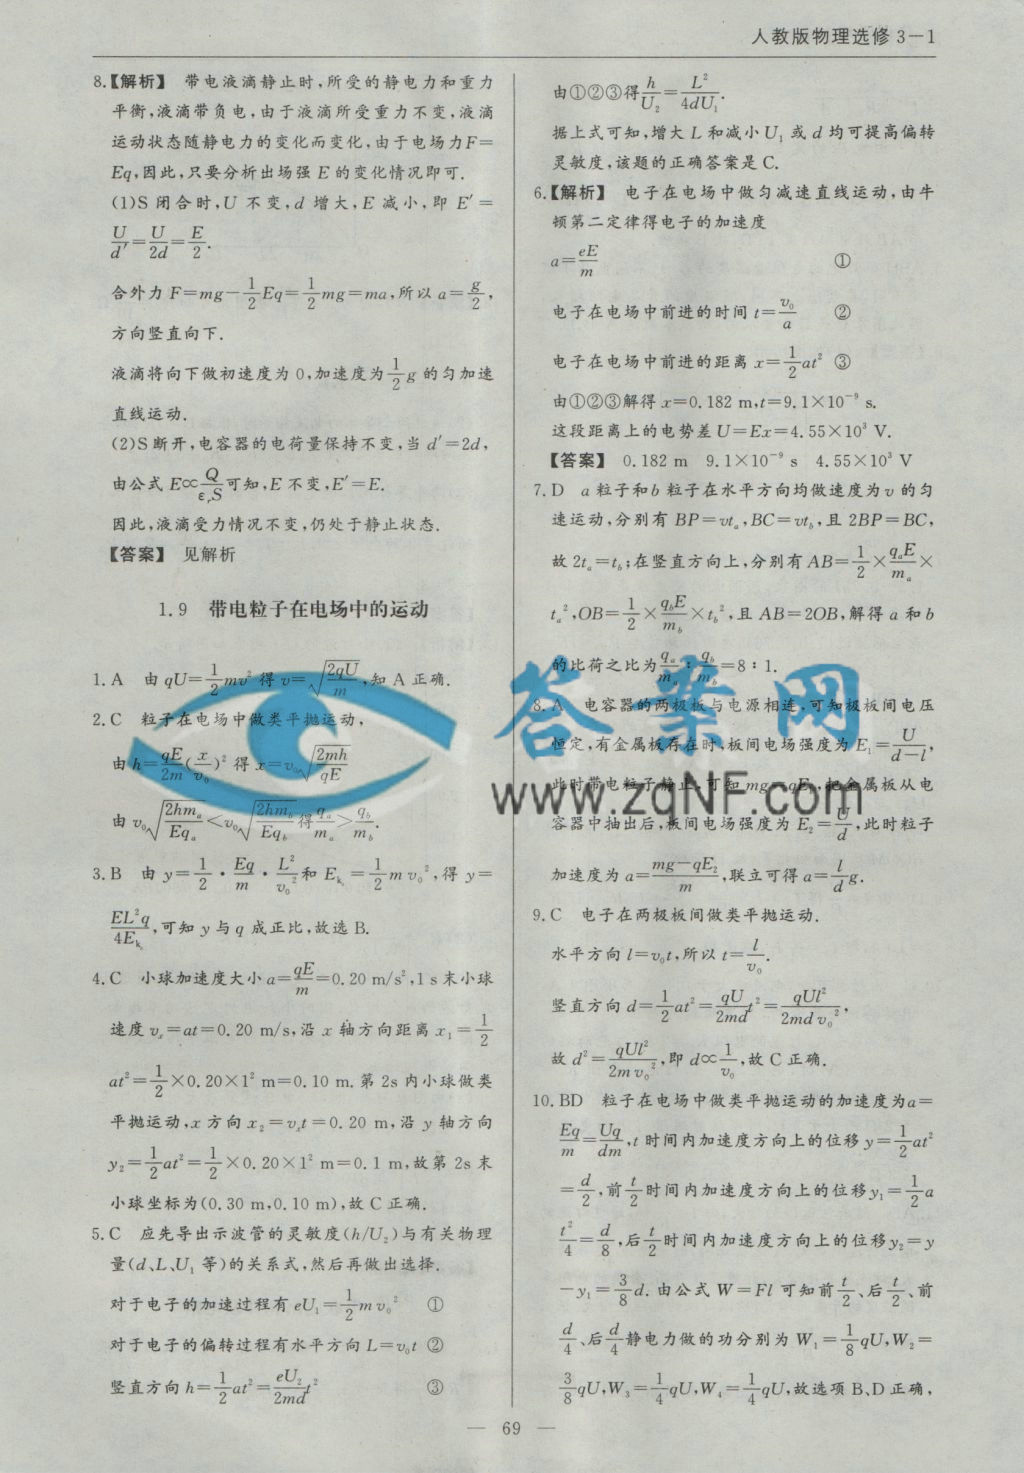 人教版物理选修3-1
8.【解析】 带电液滴静止时,所受的静电力和重力
平衡,液滴带负电,由于液滴所受重力不变,液滴
运动状态随静电力的变化而变化,由于电场力F=
Eq,因此,只要分析出场强 E 的变化情况即可.
(1)S 闭合时,U 不变,d 增大,E 减小,即 E′=
U/d′=U/2d=E/2.
合外力 F=mg-1/2Eq=1/2mg=ma,所以 a=g/2,
方向竖直向下.
液滴将向下做初速度为 0,加速度为1/2g 的匀加速
直线运动.
(2)S断开,电容器的电荷量保持不变,当 d′=2d,
由公式 E∝Q/εᵣS可知,E 不变,E′=E.
因此,液滴受力情况不变,仍处于静止状态.
【答案】 见解析
1.9 带电粒子在电场中的运动
1.A 由 qU=1/2mv² 得 v=√(2qU/m),知 A 正确.
2.C 粒子在电场中做类平抛运动,
由 h=qE/2m(x/v₀)² 得 x=v₀√(2mh/qE)
由 v₀√(2hmₐ/Eqₐ)<v₀√(2hm_b/Eq_b)得qₐ/mₐ>q_b/m_b.
3.B 由 y=1/2·Eq/m·L²/v₀²和 Eₖ₀=1/2mv₀²,得 y=
EL²q/4Eₖ₀,可知 y 与 q 成正比,故选 B.
4.C 小球加速度大小 a=qE/m=0.20 m/s²,1 s 末小球
速度 vₓ=at=0.20 m/s,沿 x 轴方向距离 x₁=1/2
at²=1/2×0.20×1² m=0.10 m.第 2s 内小球做类
平抛运动,x 方向 x₂=vₓt=0.20 m,沿 y 轴方向
y₂=1/2at²=1/2×0.20×1² m=0.1 m,故第 2s 末
小球坐标为(0.30 m,0.10 m),故 C 正确.
5.C 应先导出示波管的灵敏度(h/U₂)与有关物理
量(d、L、U₁ 等)的关系式,然后再做出选择.
对于电子的加速过程有 eU₁=1/2mv₀² ①
对于电子的偏转过程有水平方向 L=v₀t ②
竖直方向 h=1/2at²=eU₂/2md t² ③
由①②③得h/U₂=L²/4dU₁.
据上式可知,增大 L 和减小 U₁ 或 d 均可提高偏转
灵敏度,该题的正确答案是 C.
6.【解析】 电子在电场中做匀减速直线运动,由牛
顿第二定律得电子的加速度
a=eE/m ①
电子在电场中前进的时间 t=v₀/a ②
电子在电场中前进的距离 x=1/2at² ③
由①②③解得 x=0.182 m,t=9.1×10⁻⁹ s.
这段距离上的电势差 U=Ex=4.55×10³ V.
【答案】 0.182 m 9.1×10⁻⁹ s 4.55×10³ V
7.D a 粒子和 b 粒子在水平方向均做速度为 v 的匀
速运动,分别有 BP=vtₐ,BC=vt_b,且 2BP=BC,
故 2tₐ=t_b;在竖直方向上,分别有 AB=1/2×qₐE/mₐ×
tₐ²,OB=1/2×q_bE/m_b×t_b²,且 AB=2OB,解得 a 和 b
的比荷之比为qₐ/mₐ∶q_b/m_b=8∶1.
8.A 电容器的两极板与电源相连,可知极板间电压
恒定,有金属板存在时,板间电场强度为 E₁=U/(d-l),
此时带电粒子静止,可知 mg=qE₁,把金属板从电
容器中抽出后,板间电场强度为 E₂=U/d,此时粒子
加速度为 a=(mg-qE₂)/m,联立可得 a=l/d g.
9.C 电子在两极板间做类平抛运动.
水平方向 l=v₀t,所以 t=l/v₀.
竖直方向 d=1/2at²=qU/2md t²=qUl²/2mdv₀²,
故 d²=qUl²/2mv₀²,即 d∝1/v₀,故 C 正确.
10.BD 粒子在电场中做类平抛运动的加速度为a=
Eq/m=Uq/dm,t 时间内加速度方向上的位移 y=1/2at²
=d/2,前t/2时间内加速度方向上的位移y₁=1/2a
t²/4=d/8,后t/2时间内加速度方向上的位移y₂=y
-y₁=3/8d.由公式 W=Fl 可知前t/2、后t/2、前
d/4、后d/4静电力做的功分别为 W₁=1/8qU,W₂=
3/8qU,W₃=1/4qU,W₄=1/4qU,故选项 B、D 正确,
— 69 —
答案网
www.zqNF.com